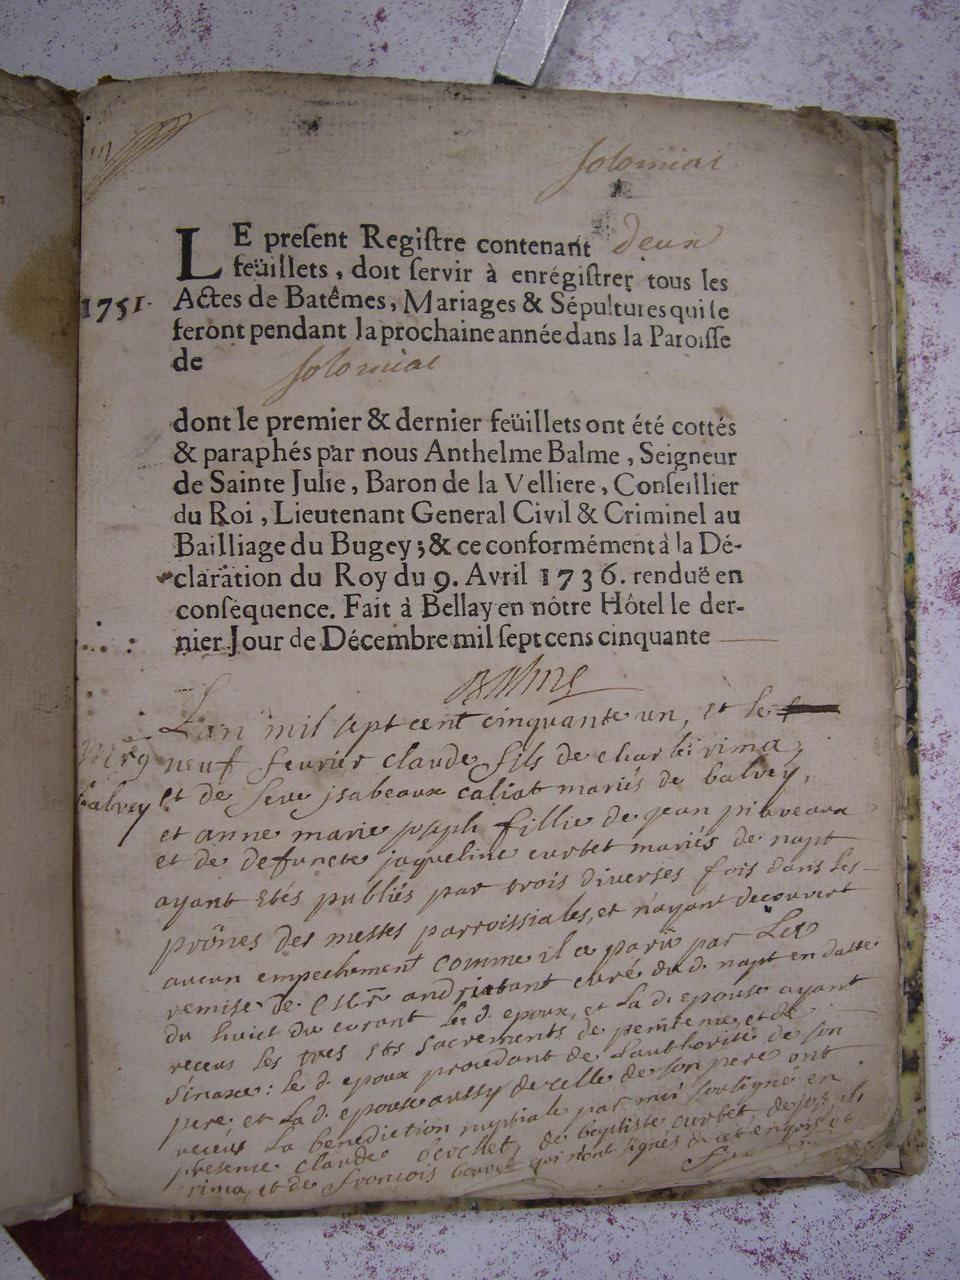 solomiat
LE preſent Regiſtre contenant deux
feüillets, doit ſervir à enrégiſtrer tous les
1751. Actes de Batêmes, Mariages & Sépultures qui ſe
feront pendant la prochaine année dans la Paroiſſe
de solomiat
dont le premier & dernier feüillets ont été cottés
& paraphés par nous Anthelme Balme, Seigneur
de Sainte Julie, Baron de la Velliere, Conſeillier
du Roi, Lieutenant General Civil & Criminel au
Bailliage du Bugey; & ce conformément à la Dé-
claration du Roy du 9. Avril 1736. renduë en
conſéquence. Fait à Bellay en nôtre Hôtel le der-
nier Jour de Décembre mil ſept cens cinquante
Balme
L'an mil sept cent cinquante un, et le
neuf feurier claude fils de charle rima
balvey et de feue jsabeaux caliat mariés de balvey,
et anne marie joseph fillie de jean
et de defuncte jaqueline curbet mariés de napt
ayant etés publiés par trois diverses fois dans les
prônes des messes parroissiales, et n'ayant decouvert
aucun empechement comme il a parû par
remise de curé du d. napt en datte
du huict du courant le d. epoux, et la d. epouse ayant
receus les tres sts sacrements de penitence et de
le d. epoux procedant de l'authorité de son
pere, et la d. epouse aussy de celle de son pere ont
receus la benediction nuptiale par moi soussigné en
presence claude berchet, de baptiste curbet, de
rima, et de francois qui n'ont signés de ce enquis